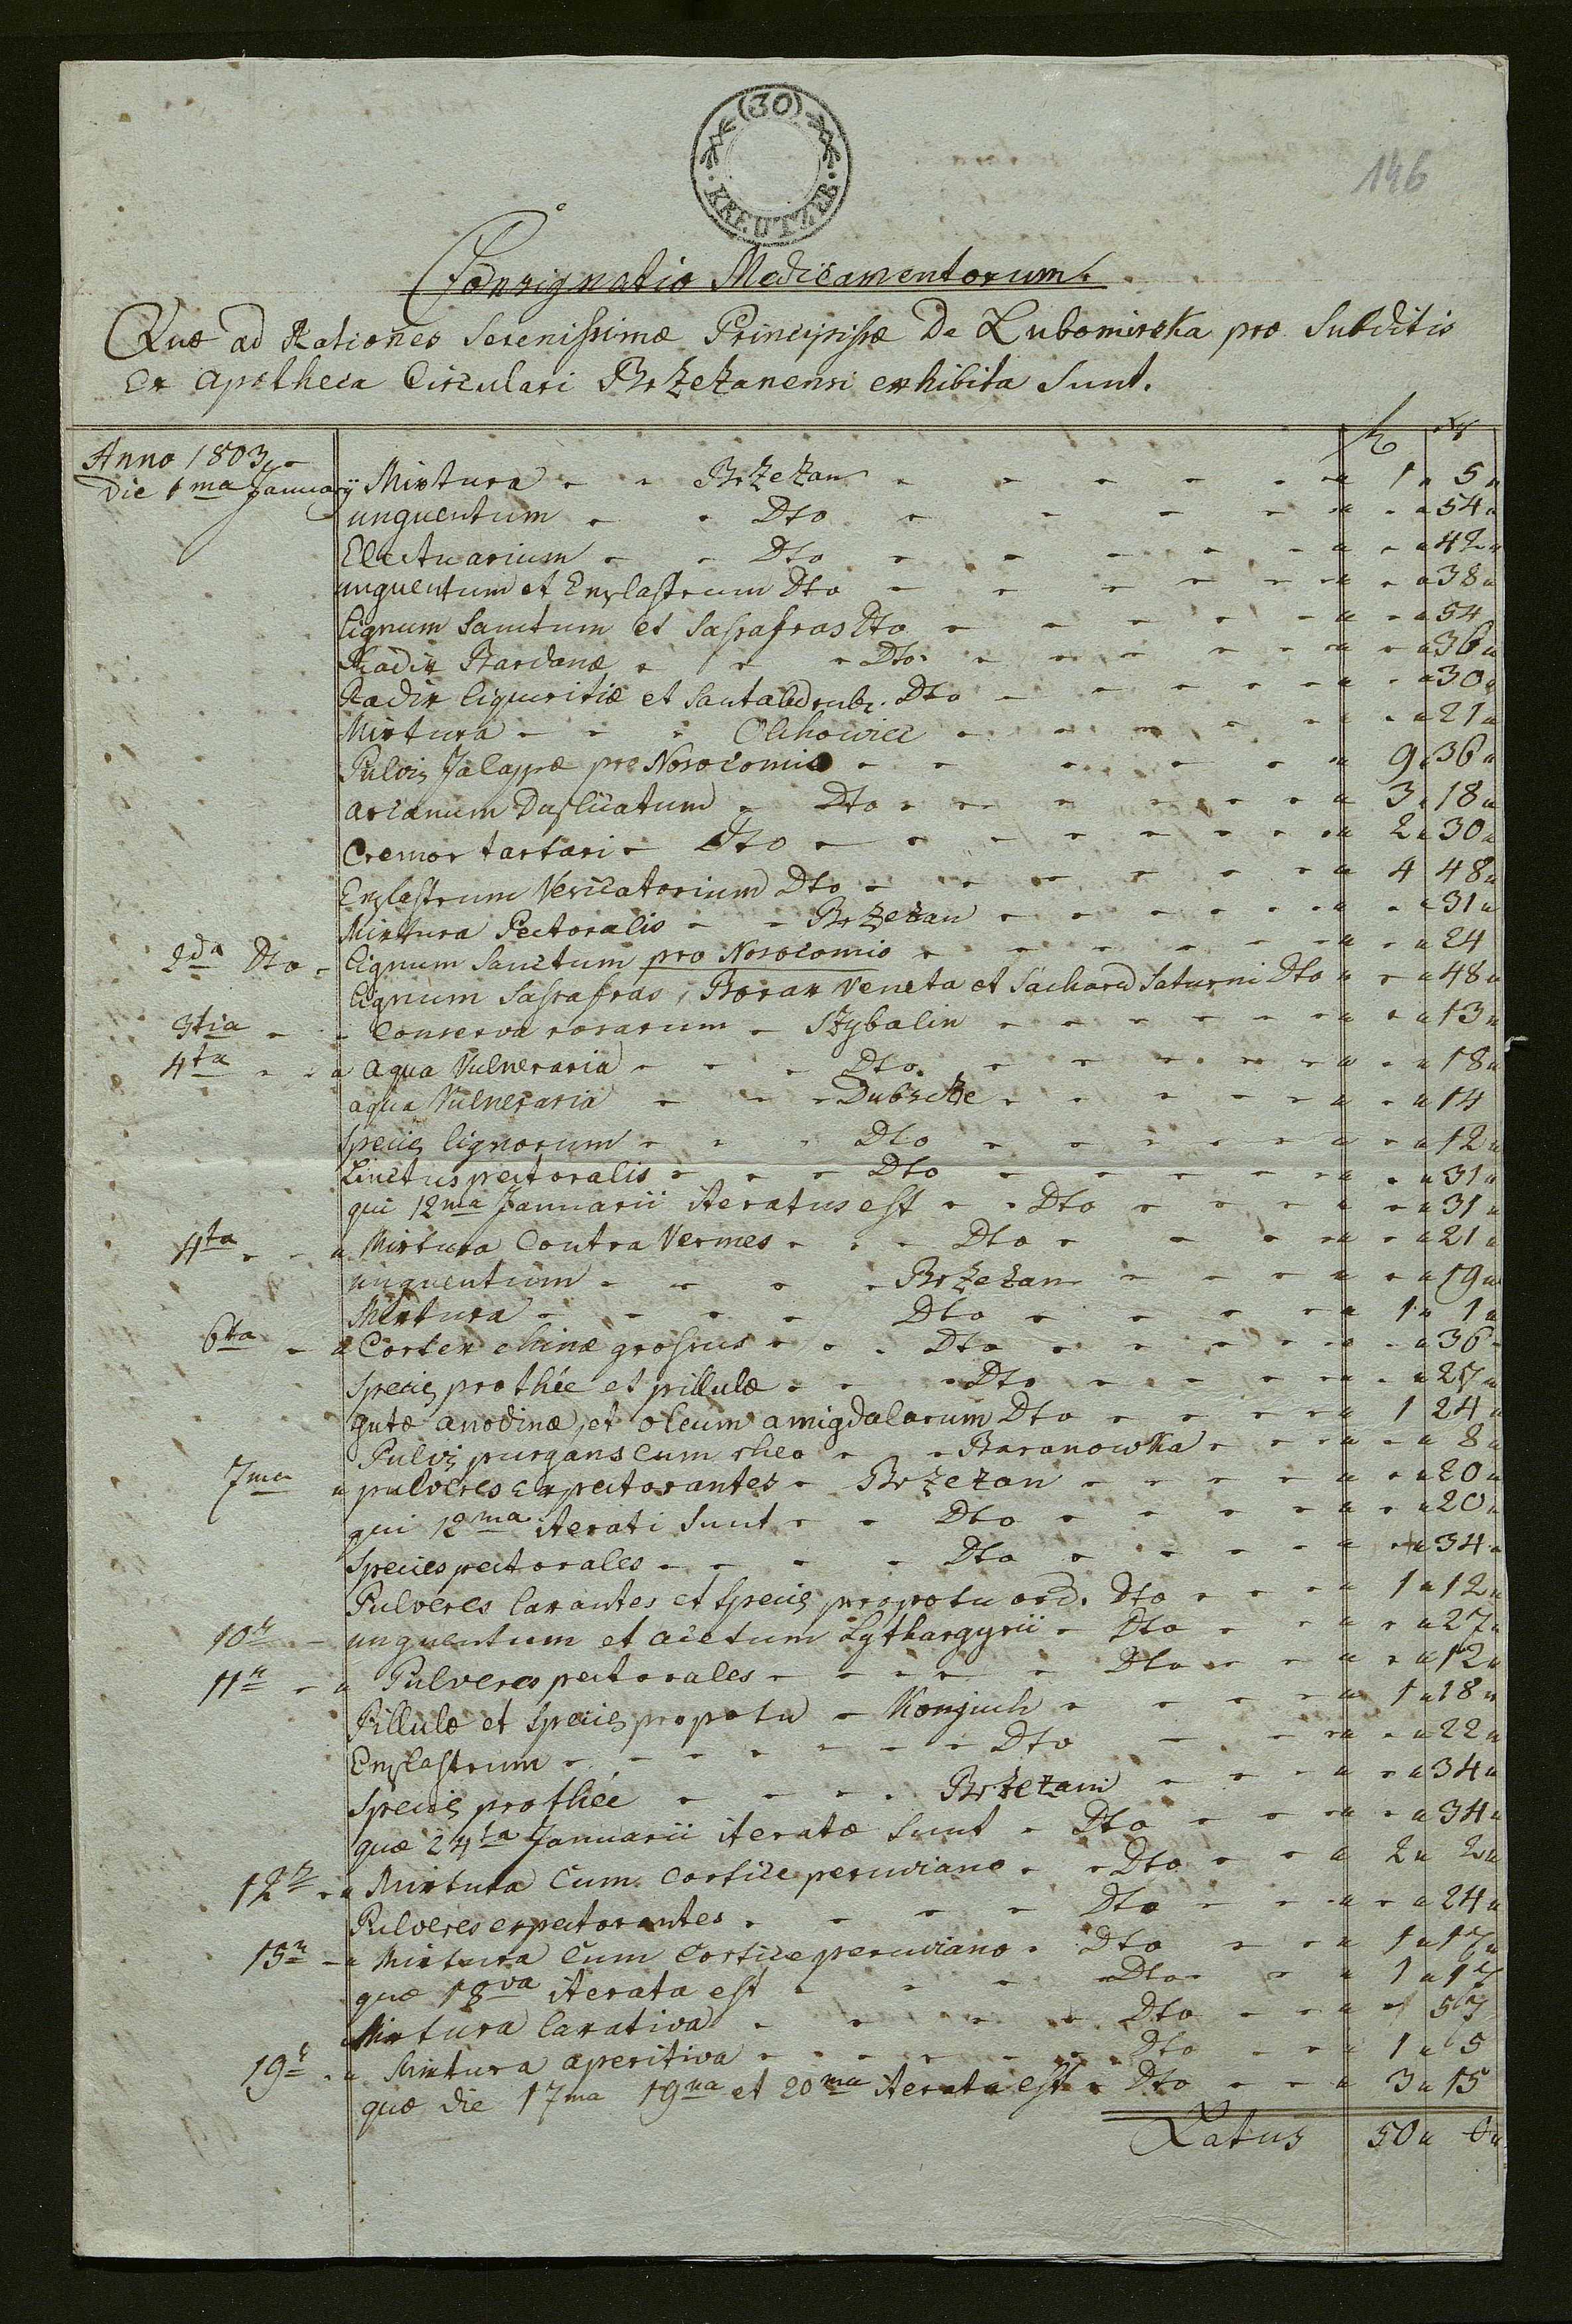 (30)
KREUTZER
146
Consignatio Medicamentorum.
Quæ ad Rationes Serenissimæ Principissæ De Lubomirska pro Subditis
Ex Apotheca Circulari Brzeżanensi exhibita Sunt.
f xr
Anno 1803
Die 1ma January Mixtura Brzeżan 1 5
unguentum Dto 54
Electuarium Dto 42
unguentum et Emplastrum Dto 38
Lignum Sanctum et Sassafras Dto 54
Radix Bardanæ Dto 36
Radix liquiritiæ et Santali rubr. Dto 30
Mixtura Olchowiec 21
Pulvis Jalappæ pro Nosocomio 9 36
Arcanum Duplicatum Dto 3 18
Cremor tartari Dto 2 30
Emplastrum Vesicatorium Dto 4 48
Mixtura Pectoralis Brzeżan 31
2da Dto Lignum Sanctum pro Nosocomio 24
Lignum Sassafras, Borax Veneta et Sachard Saturni Dto 48
3tia Conserva rosarum Szybalin 13
4ta Aqua Vulneraria Dto 18
aqua Vulneraria 14
Species lignorum Dto 12
Linctus pectoralis Dto 31
qui 12ma Januarii iteratus est Dto 31
4ta Mixtura Contra Vermes Dto 21
unguentum Brzeżan 19
Mixtura Dto 1 1
6ta Cortex chinæ grossus Dto 36
Species prothée et pillulæ Dto 27
gutæ anodinæ, et oleum amigdalarum Dto 1 24
Pulvis purgans cum rheo Baranowka 8
7ma pulveres expectorantes Brzeżan 20
qui 12ma iterati Sunt Dto 20
Species pectorales Dto 34
Pulveres laxantes et Species pro potu ord. Dto 1 12
10a unguentum et acetum Lythargyrii Dto 27
11a Pulveres pectorales Dto 12
Pillulæ et Species pro potu Koniuch 1 18
Emplastrum Dto 22
Species prothée Brzeżani 34
quæ 24ta Januarii iteratæ Sunt Dto 34
12a Mixtura Cum Cortice peruviano Dto 2 2
Pulveres expectorantes Dto 24
15a Mixtura Cum Cortice peruviano Dto 1 17
quæ 18va iterata est Dto 1 17
Mixtura laxativa Dto 57
19a Mixtura aperitiva Dto 1 5
quæ die 17ma 19na et 20ma iterata est Dto 3 15
Latus 50 0